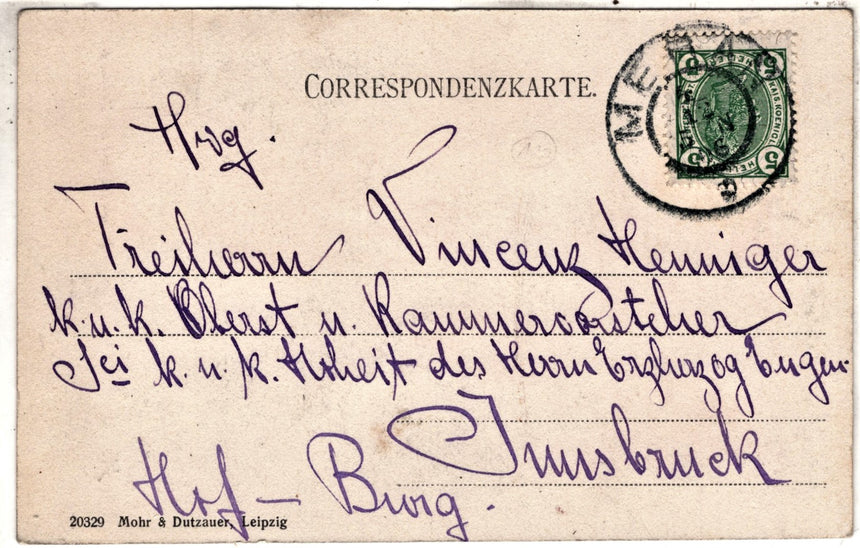 CORRESPONDENZKARTE.
MERA
5 5
5 5
Hrg.
Freiherrn Vincenz Henniger
k.u.k. Oberst u. Kammervorsteher
Sei k.u.k. Hoheit des Herrn Erzherzog Eugen
Innsbruck
Hof - Burg.
20329 Mohr & Dutzauer, Leipzig